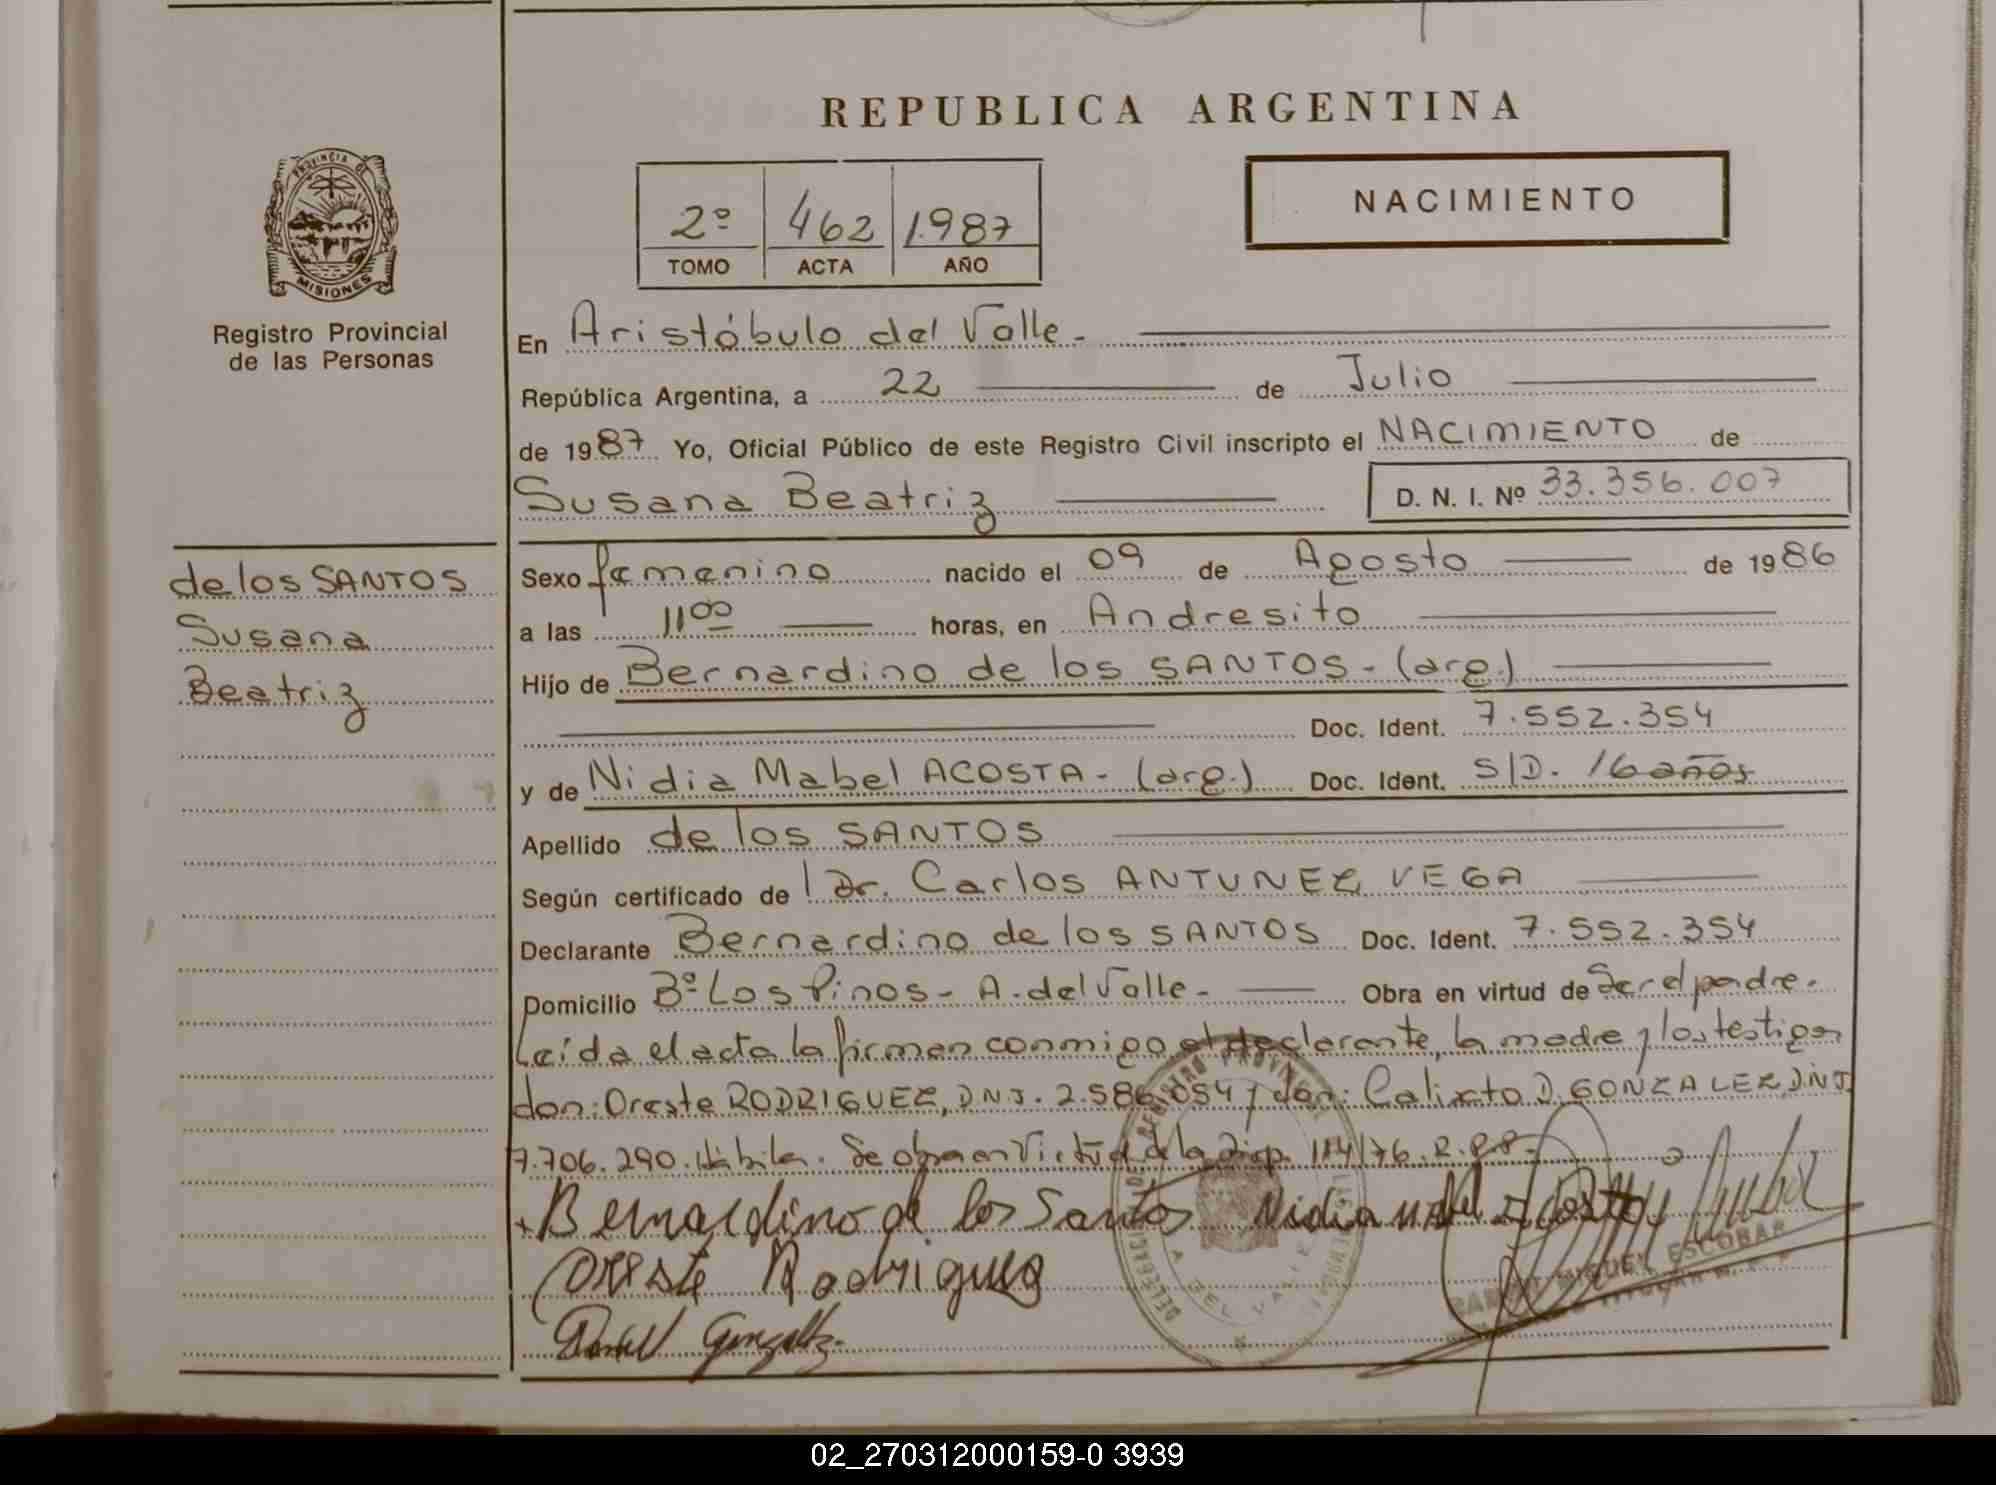 REPUBLICA ARGENTINA
PROVINCIA DE
MISIONES
Registro Provincial
de las Personas
2º 462 1.987
TOMO ACTA AÑO
NACIMIENTO
En Aristóbulo del Valle.-
República Argentina, a 22 de Julio
de 1987 Yo, Oficial Público de este Registro Civil inscripto el NACIMIENTO de
Susana Beatriz D. N. I. Nº 33.356.007
de los SANTOS
Susana
Beatriz
Sexo femenino nacido el 09 de Agosto de 1986
a las 11 00 horas, en Andresito
Hijo de Bernardino de los SANTOS.- (arg.)
Doc. Ident. 7.552.354
y de Nidia Mabel ACOSTA.- (arg.) Doc. Ident. S/D. 16 años
Apellido de los SANTOS
Según certificado de Dr. Carlos ANTUNEZ VEGA
Declarante Bernardino de los SANTOS Doc. Ident. 7.552.354
Domicilio Bº Los Pinos.- A. del Valle.- Obra en virtud de Ser el padre.
Leída el acta la firman conmigo el declarante, la madre y los testigos
don: Oreste RODRIGUEZ, D.N.I. 2.586.054 y don: Calixto D. GONZALEZ, D.N.I.
7.706.290. Hábiles. Se obra en Virtud de la Disp. 114/76. R.P.P.-
Bernardino de los Santos Nidia Mabel Acosta
Oreste Rodriguez
Daniel Gonzalez
MIGUEL ESCOBAR
02_270312000159-0 3939